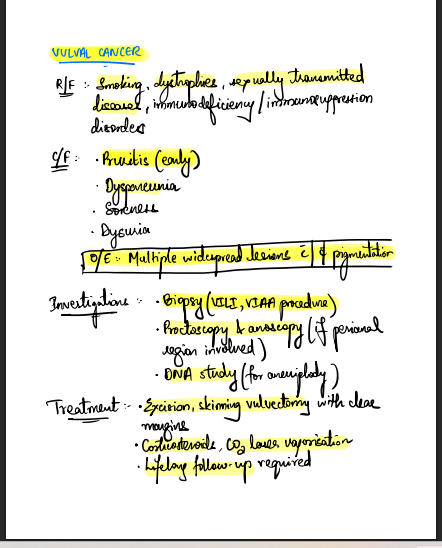 VULVAL CANCER
R/F :- Smoking, dystrophies, sexually transmitted
diseases, immunodeficiency/immunosuppression
disorders
C/F :- · Pruritis (early)
· Dyspareunia
· Soreness
· Dysuria
O/E :- Multiple widespread lesions c̄ pigmentation
Investigations :- · Biopsy (VILI, VIAA procedure)
· Proctoscopy & anoscopy (if perianal
region involved)
· DNA study (for aneuploidy)
Treatment :- · Excision, skinning vulvectomy with clear
margins
· Corticosteroids, CO2 laser vaporisation
· Lifelong follow-up required